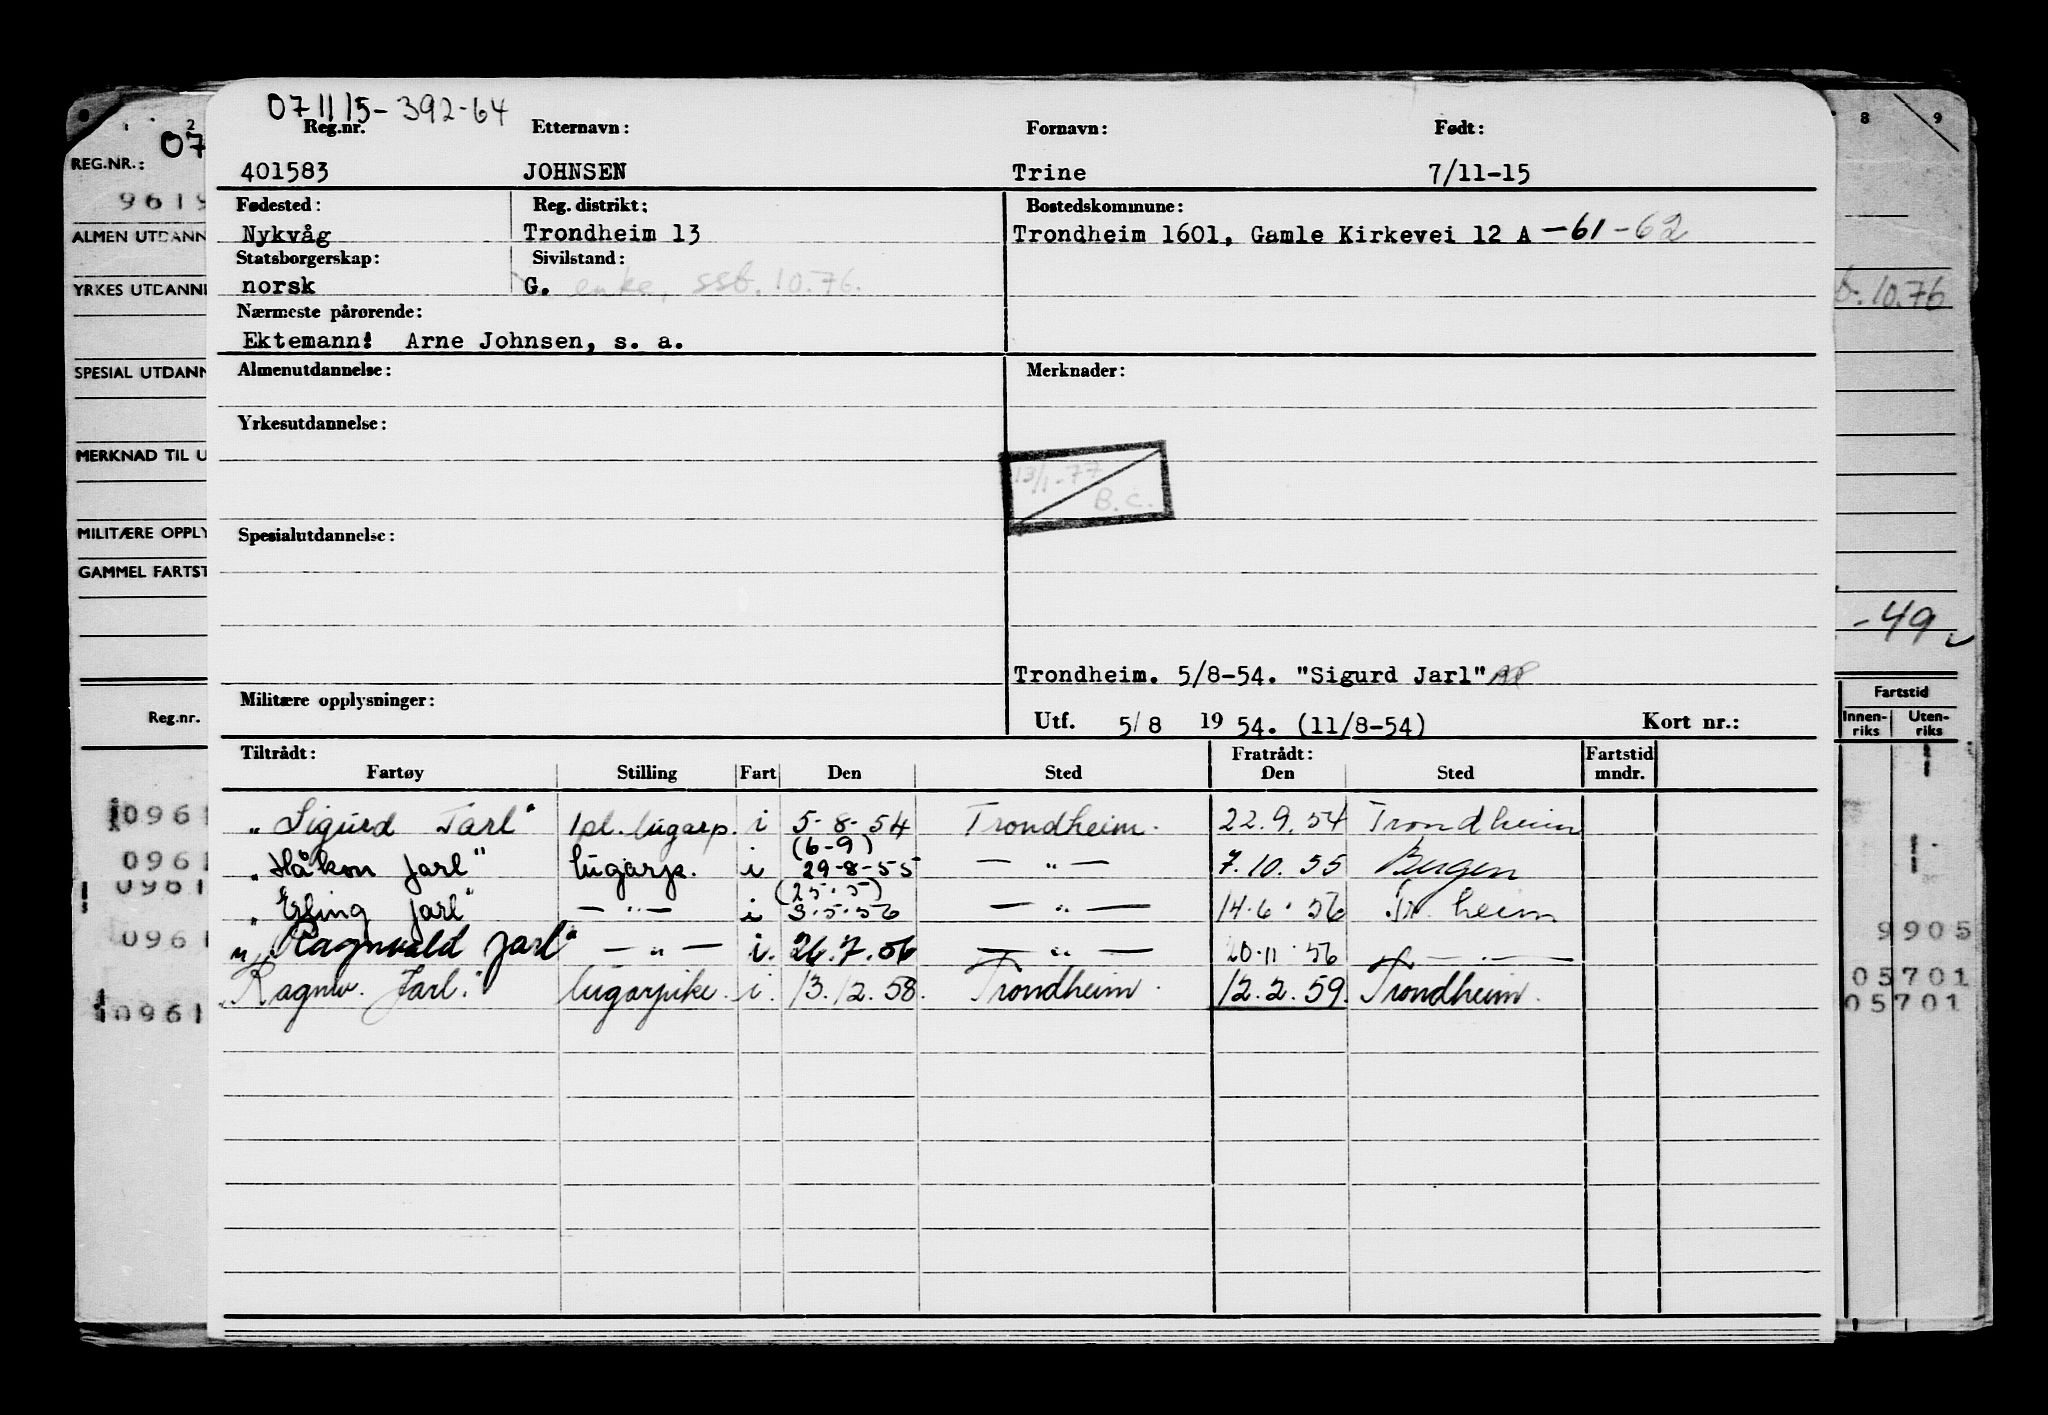 071115-392-64
Reg.nr. Etternavn: Fornavn: Født:
401583 JOHNSEN Trine 7/11-15
Fødested: Reg. distrikt: Bostedskommune:
Nykvåg Trondheim 13 Trondheim 1601, Gamle Kirkevei 12 A -61-62
Statsborgerskap: Sivilstand:
norsk G. enke, ssb. 10.76.
Nærmeste pårørende:
Ektemann: Arne Johnsen, s. a.
Almenutdannelse: Merknader:
Yrkesutdannelse:
13/1-77
B.C.
Spesialutdannelse:
Trondheim. 5/8-54. "Sigurd Jarl"
Militære opplysninger:
Utf. 5/8 1954. (11/8-54) Kort nr.:
Tiltrådt: Fratrådt: Fartstid
Fartøy Stilling Fart Den Sted Den Sted mndr.
"Sigurd Jarl" 1pl. lugarp. i 5-8-54 Trondheim. 22.9.54 Trondheim
(6-9)
"Håkon Jarl" lugarp. i 29-8-55 — " — 7.10.55 Bergen
(25.5)
"Erling Jarl" — " — i 3.5.56 — " — 14.6.56 Tr.heim
"Ragnvald Jarl" — " — i. 26.7.56 — " — 20.11.56 — " —
"Ragnv. Jarl." lugarpike. i. 13.12.58. Trondheim. 12.2.59. Trondheim.
2
07
REG.NR.:
9619
ALMEN UTDANN
YRKES UTDANNE
SPESIAL UTDANN
MERKNAD TIL U
MILITÆRE OPPLY
GAMMEL FARTST
Reg.nr.
0961
0961
0961
0961
0961
8 9
b. 10.76
-49
Fartstid
Innen-riks Uten-riks
9905
05701
05701